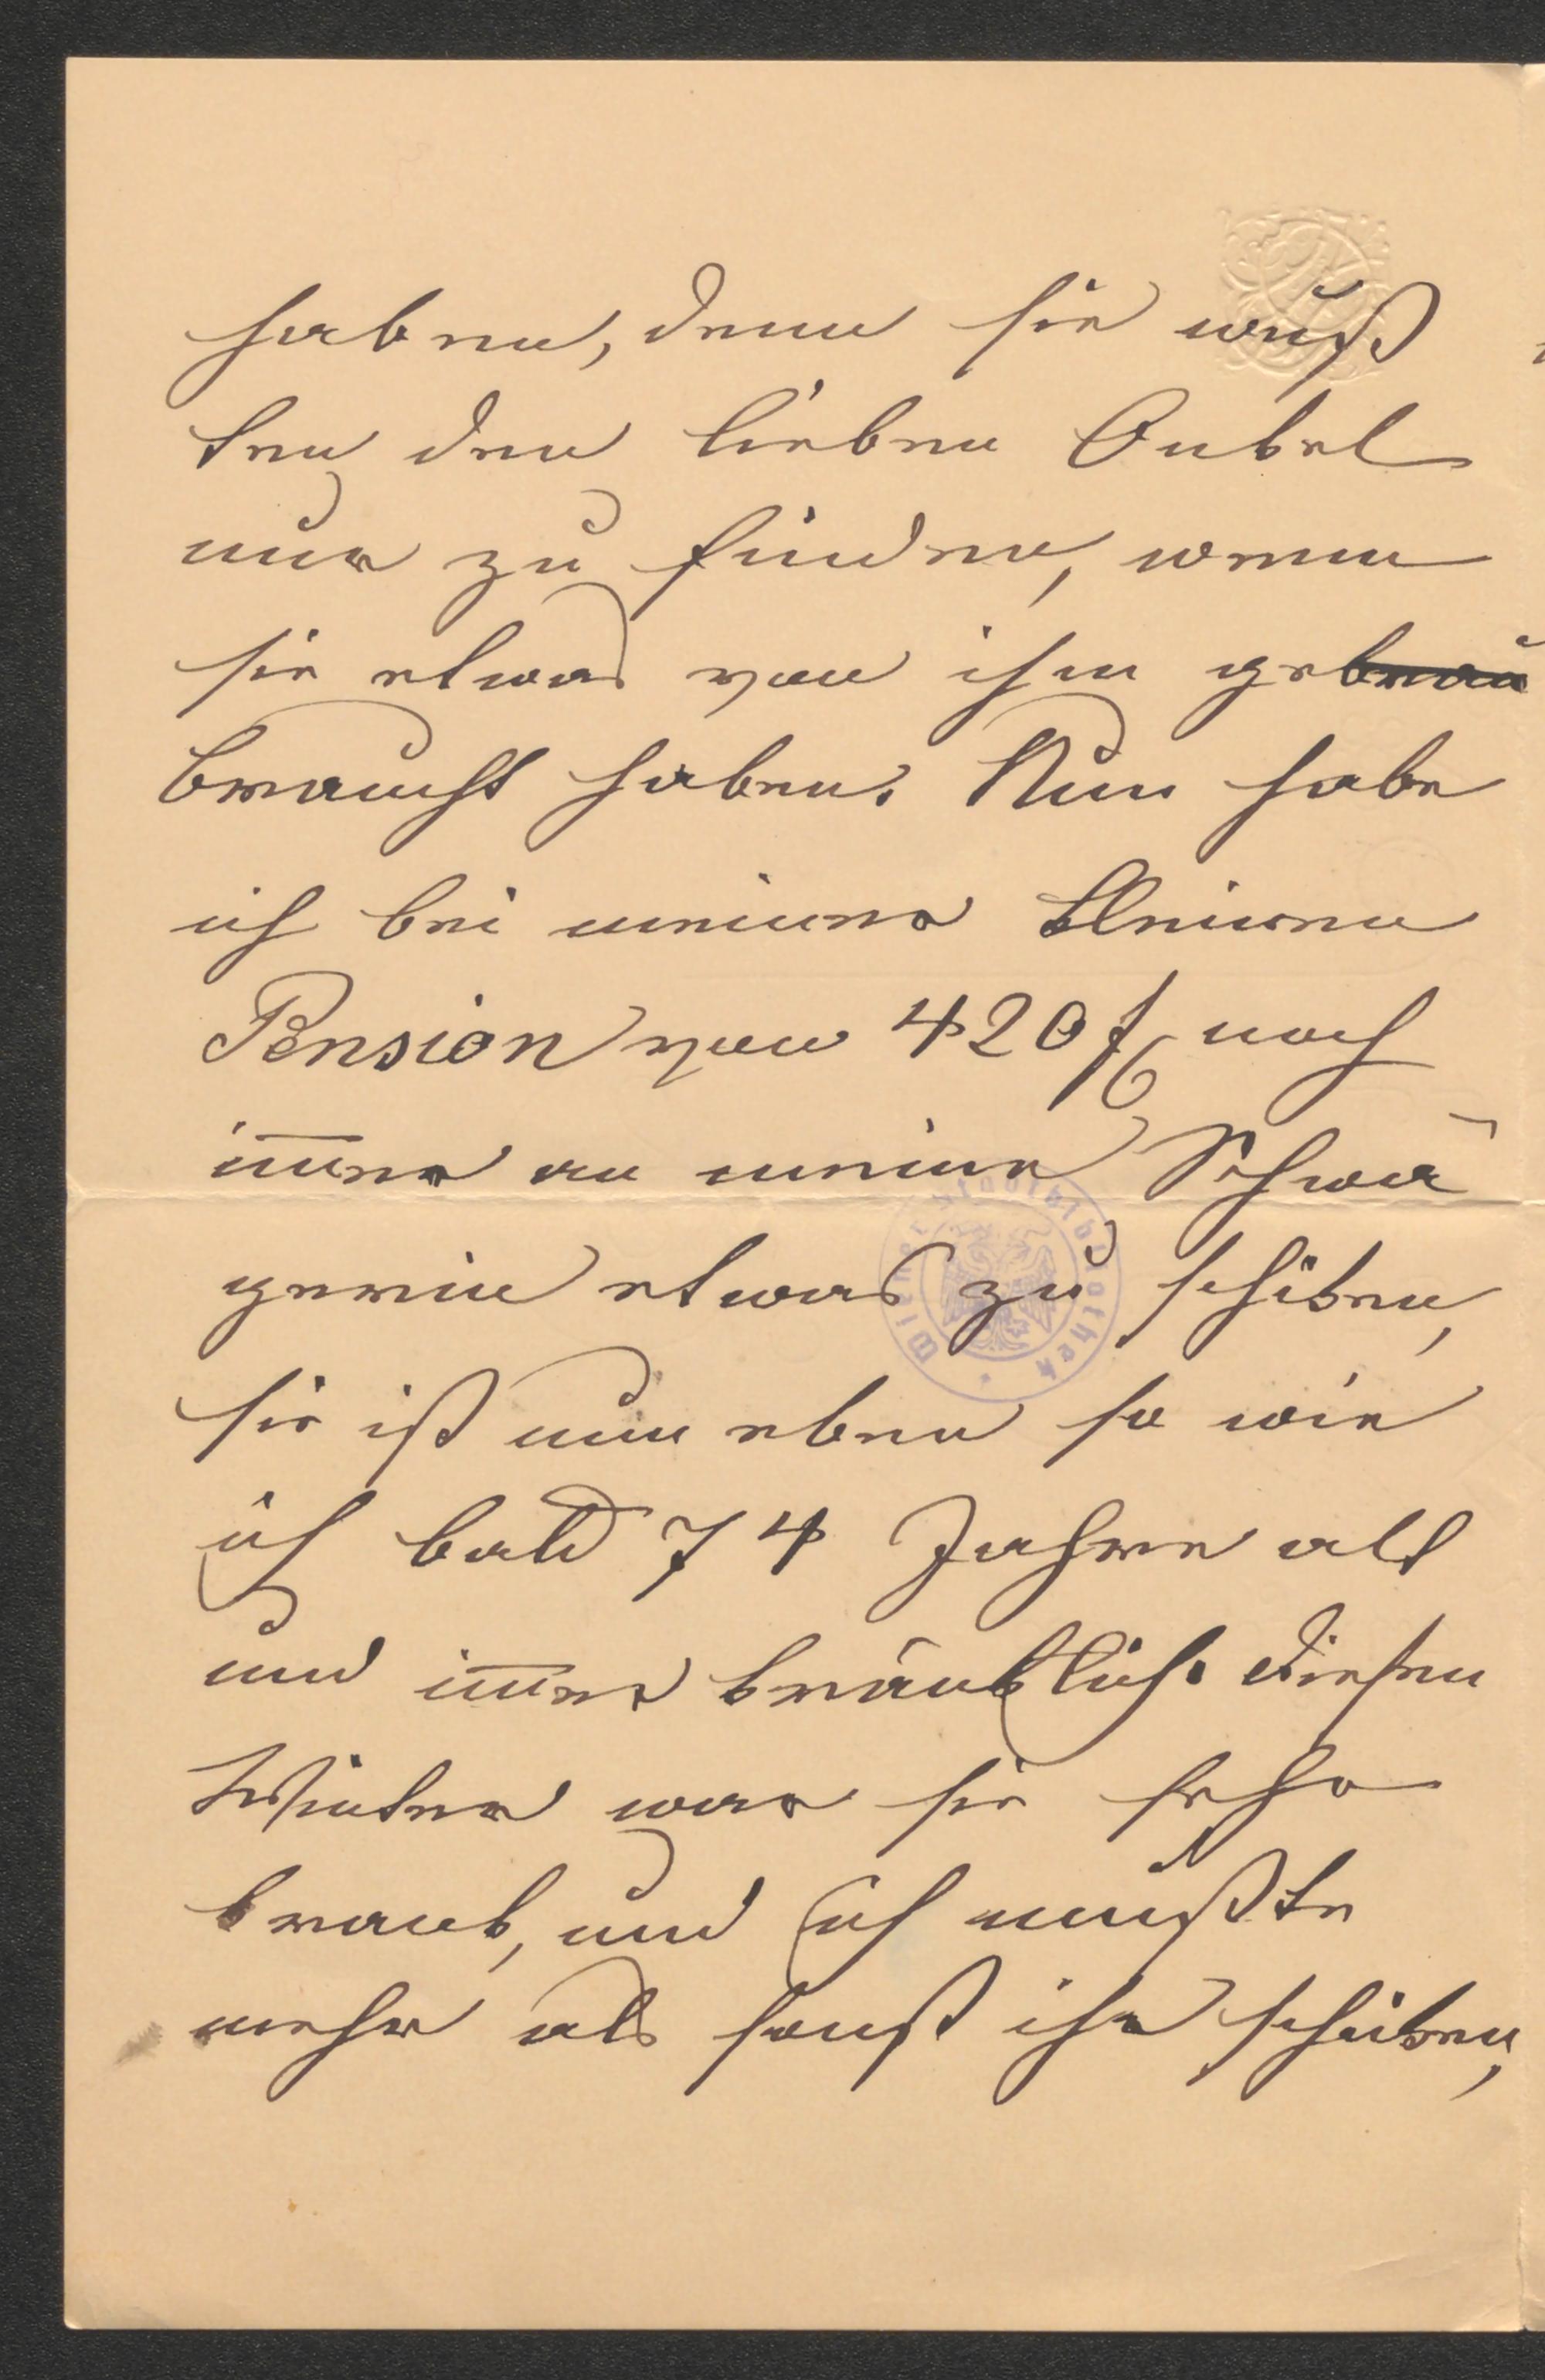 haben, denn sie wuß
ten den lieben Onkel
nur zu finden, wenn
sie etwas von ihm gebrau
braucht haben. Nun habe
ich bei meiner kleinen
Pension von 420 f noch
im̅er an meine Schwä
gerin etwas zu schiken,
sie ist nun eben so wie
ich bald 74 Jahre alt
und im̅er kränklich. Diesen
Winter war sie sehr
krank, und ich mußte
mehr als sonst ihr schiken,
Wiener Stadtbibliothek